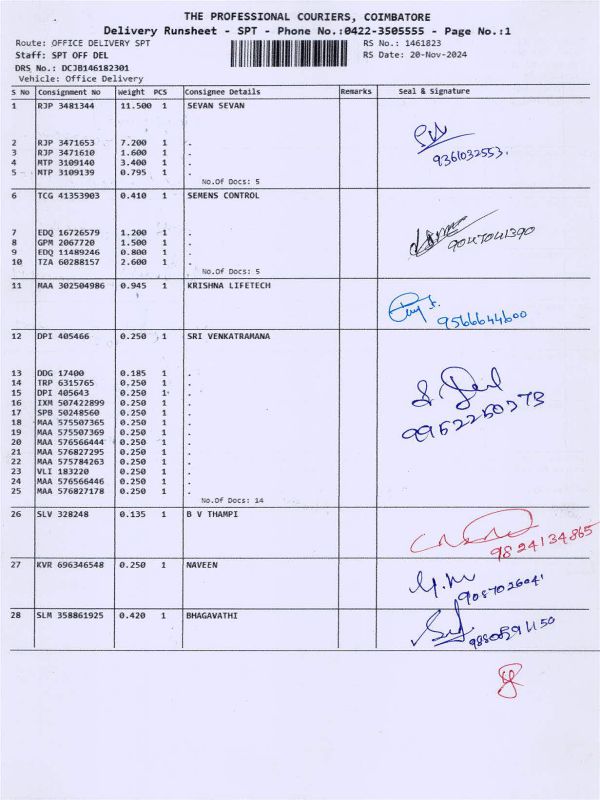 THE PROFESSIONAL COURIERS, COIMBATORE
Delivery Runsheet - SPT - Phone No.:0422-3505555 - Page No.:1
Route: OFFICE DELIVERY SPT RS No.: 1461823
Staff: SPT OFF DEL RS Date: 20-Nov-2024
DRS No.: DCJB146182301
Vehicle: Office Delivery
S No Consignment No Weight PCS Consignee Details Remarks Seal & Signature
1 RJP 3481344 11.500 1 SEVAN SEVAN
2 RJP 3471653 7.200 1 .
3 RJP 3471610 1.600 1 .
4 MTP 3109140 3.400 1 .
9361032553.
5 MTP 3109139 0.795 1 .
No.Of Docs: 5
6 TCG 41353903 0.410 1 SEMENS CONTROL
7 EDQ 16726579 1.200 1 .
8 GPM 2067720 1.500 1 .
9047041390
9 EDQ 11489246 0.800 1 .
10 TZA 60288157 2.600 1 .
No.Of Docs: 5
11 MAA 302504986 0.945 1 KRISHNA LIFETECH
9566644600
12 DPI 405466 0.250 1 SRI VENKATRAMANA
13 DDG 17400 0.185 1 .
14 TRP 6315765 0.250 1 .
15 DPI 405643 0.250 1 .
16 IXM 507422899 0.250 1 .
17 SPB 50248560 0.250 1 .
18 MAA 575507365 0.250 1 .
19 MAA 575507369 0.250 1 .
20 MAA 576566444 0.250 1 .
21 MAA 576827295 0.250 1 .
22 MAA 575784263 0.250 1 .
23 VLI 183220 0.250 1 .
24 MAA 576566446 0.250 1 .
25 MAA 576827178 0.250 1 .
No.Of Docs: 14
26 SLV 328248 0.135 1 B V THAMPI
9824134865
27 KVR 696346548 0.250 1 NAVEEN
28 SLM 358861925 0.420 1 BHAGAVATHI